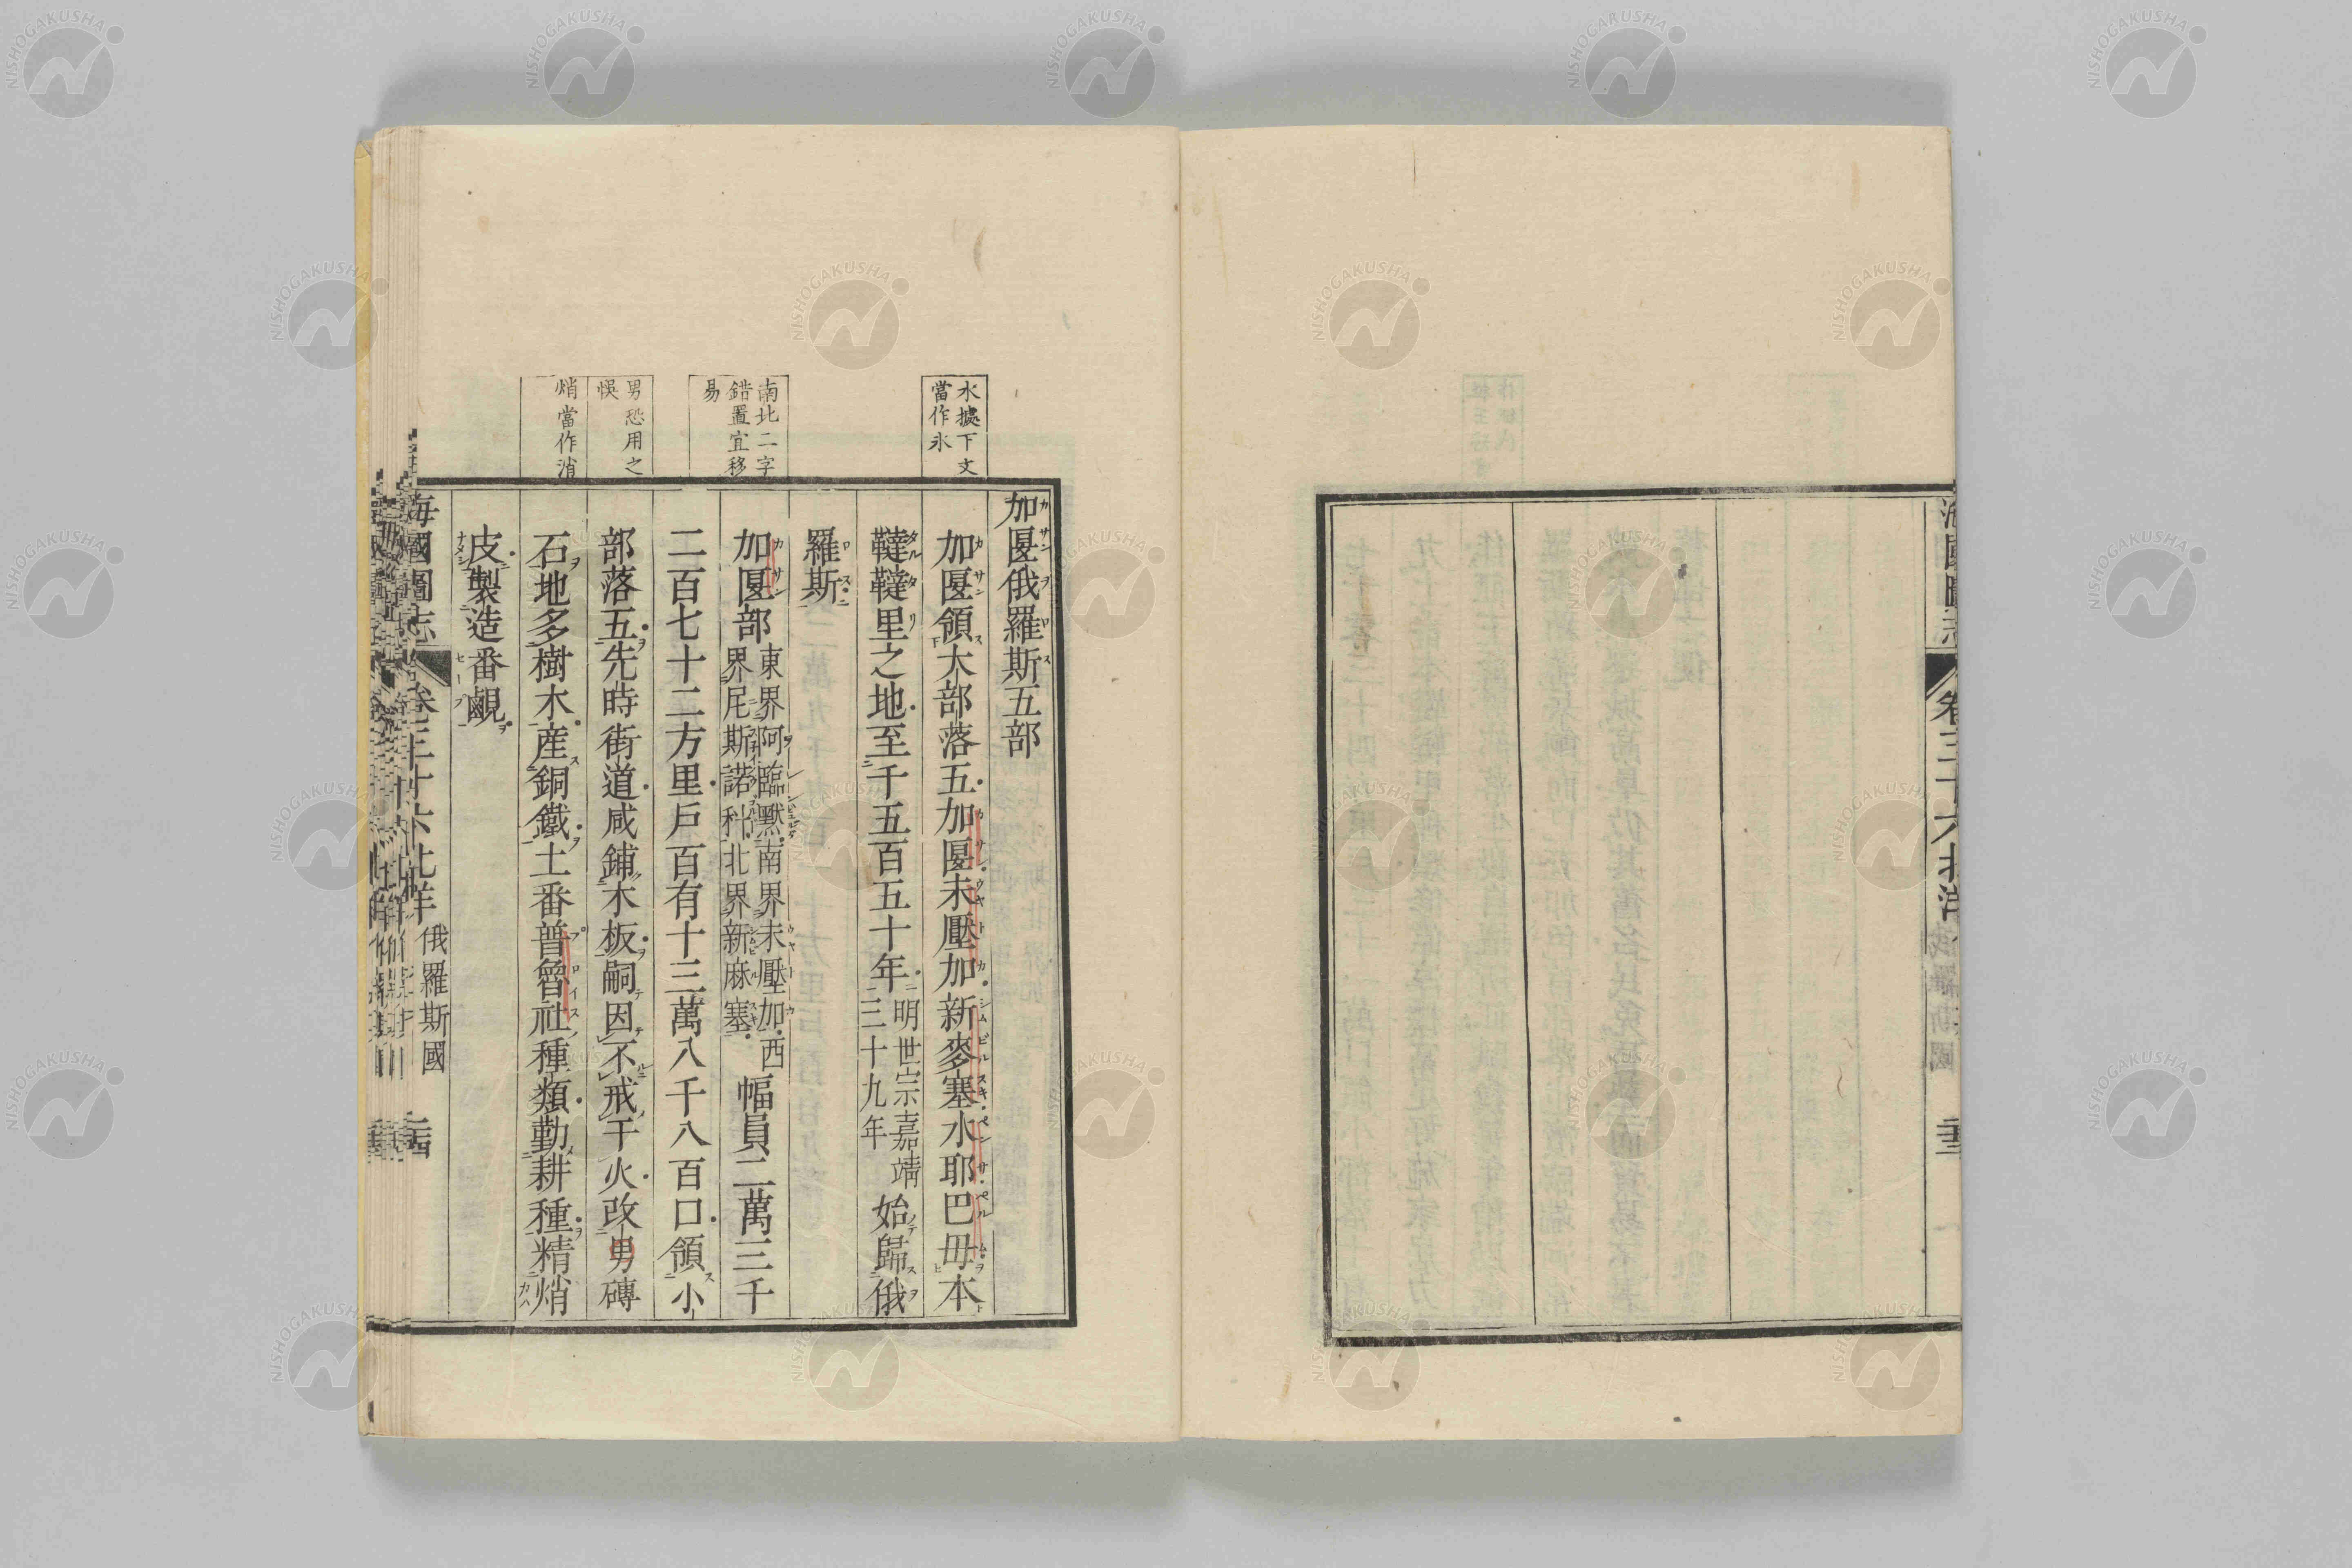 海國圖志 卷三十六 北洋 俄羅斯國
水據下文
當作氷
南北二字
錯置宜移
易
男恐用之
悞
焇當作消
加匽俄羅斯五部
加匽領大部落五加匽未壓加新麥塞水耶巴毋本
韃韃里之地至千五百五十年明世宗嘉靖三十九年始歸俄
羅斯
加匽部東界阿臨默南界未壓加西界尼斯諾科北界新麻塞幅員二萬三千
二百七十二方里戶百有十三萬八千八百口領小
部落五先時街道咸鋪木板嗣因不戒于火改男磚
石地多樹木産銅鐵土番普魯社種類勤耕種精焇
皮製造番鹼
海國圖志 卷三十六 北洋 俄羅斯國
NISHOGAKUSHA